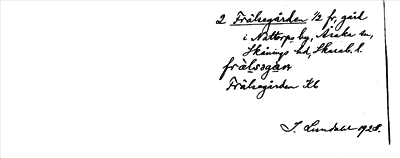 2 Frälsegården 1/2 fr, gård
i Nattorps by, Åsaka sn,
Skånings hd, Skarab. l.
frälsəgan
Frälsegården Kb
J. Lundahl 1928.